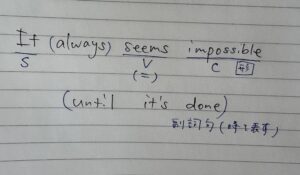 It (always) seems impossible
S V C 形
(=)
(until it's done)
副詞句(時を表す)